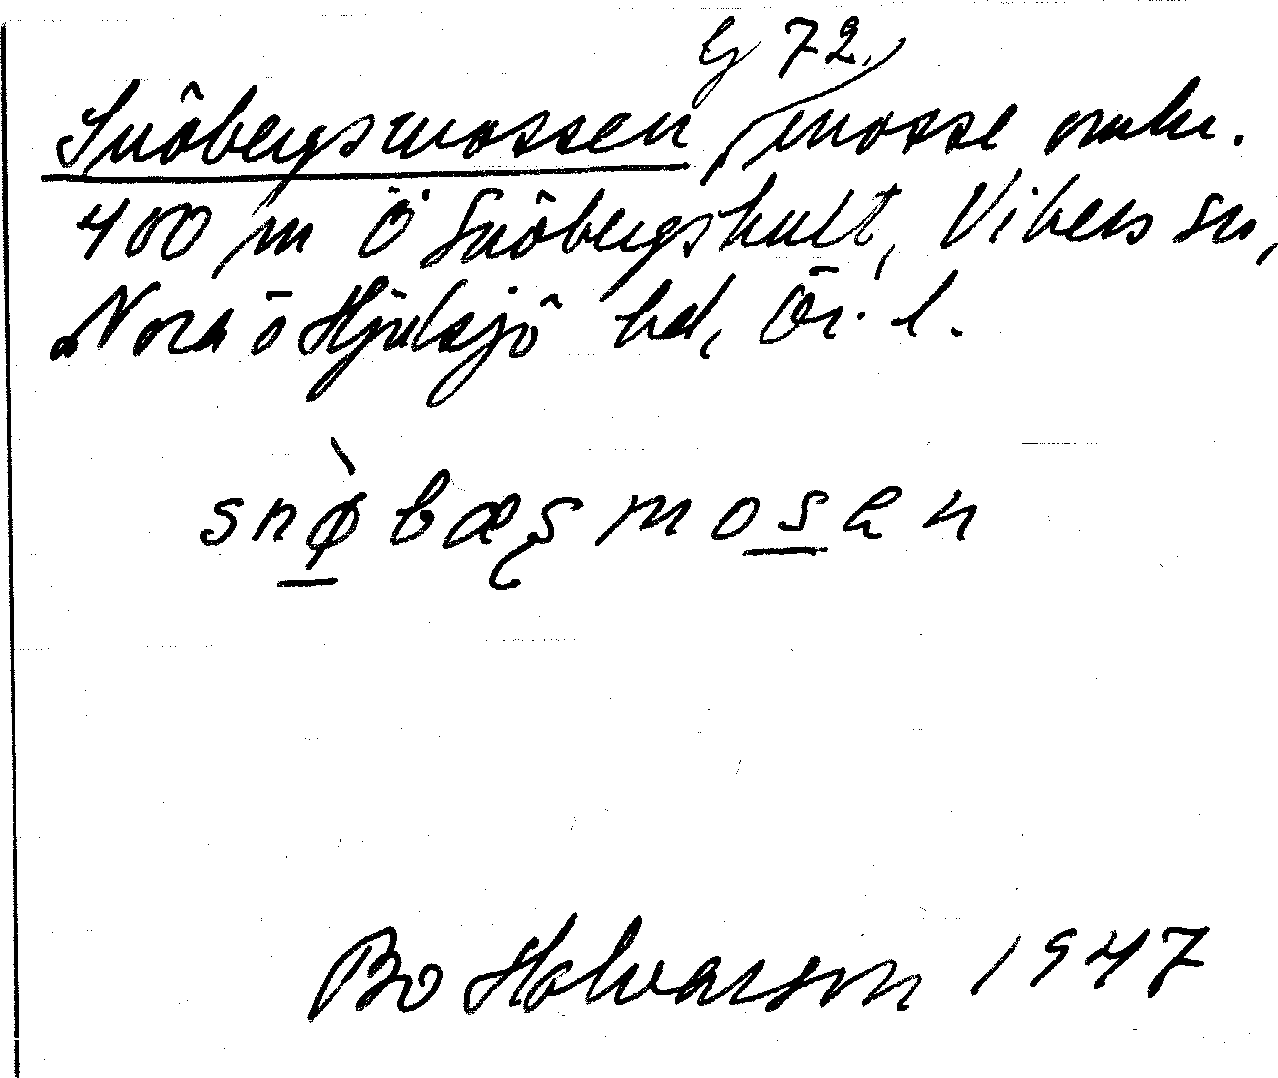 G 72
Snöbergsmossen, mosse omkr.
400 m Ö Snöbergshult, Vikers sn,
Nora ö Hjulsjö hd, Ör. l.
snø̀bæʂmosen
Bo Halvarson 1947